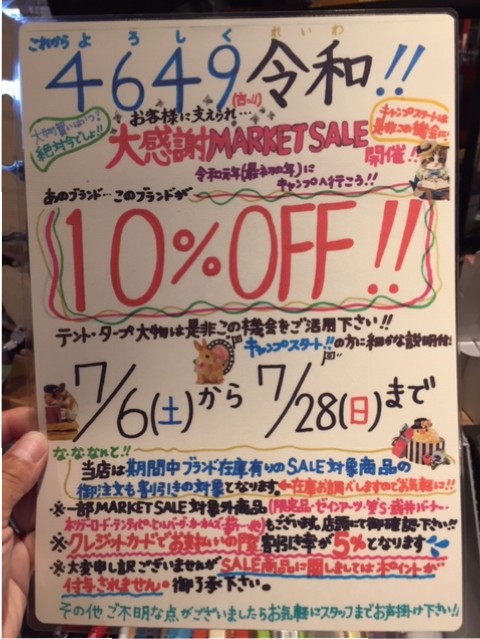 これから よ ろ し く れ い わ
4649 令和!!
(古っ!!)
大物の買いはいつ?
絶対今でしょ!!
お客様に支えられ…
キャンプスタートは
是非この機会に!
大感謝MARKET SALE 開催!!
令和元年(最初の年)に
キャンプへ行こう!!
あのブランド…このブランドが
10%OFF!!
テント・タープ大物は是非この機会をご活用下さい!!
キャンプスタート!!の方に細かな説明付!
7/6(土)から 7/28(日)まで
な・な・なんと!!
当店は期間中ブランド在庫有りのSALE対象商品の
御注文も割引きの対象となります。←在庫お調べしますのでお気軽に!!
※一部MARKET SALE対象外商品(限定品・ゼインアーツ・
もございます。店頭にて御確認下さい!!
※クレジットカードでお支払いの際 割引き率が5%となります
※大変申し訳ございませんがSALE商品に関しましてはポイントが
付与されません。御了承下さい。
その他 ご不明な点がございましたらお気軽にスタッフまでお声掛け下さい!!